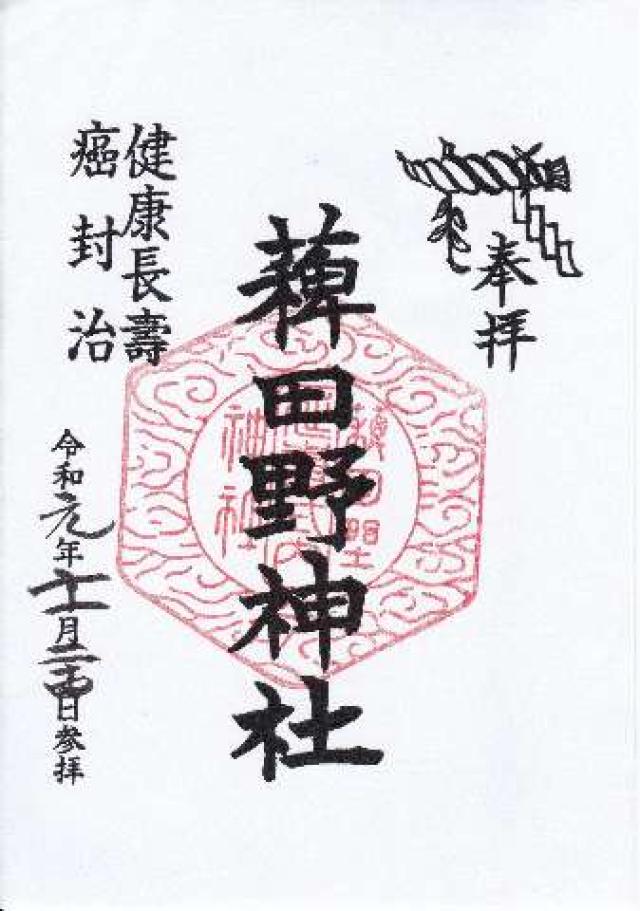 奉拝
薭田野神社
薭田野
神社
健康長壽
癌封治
令和元年十一月二十四日参拝